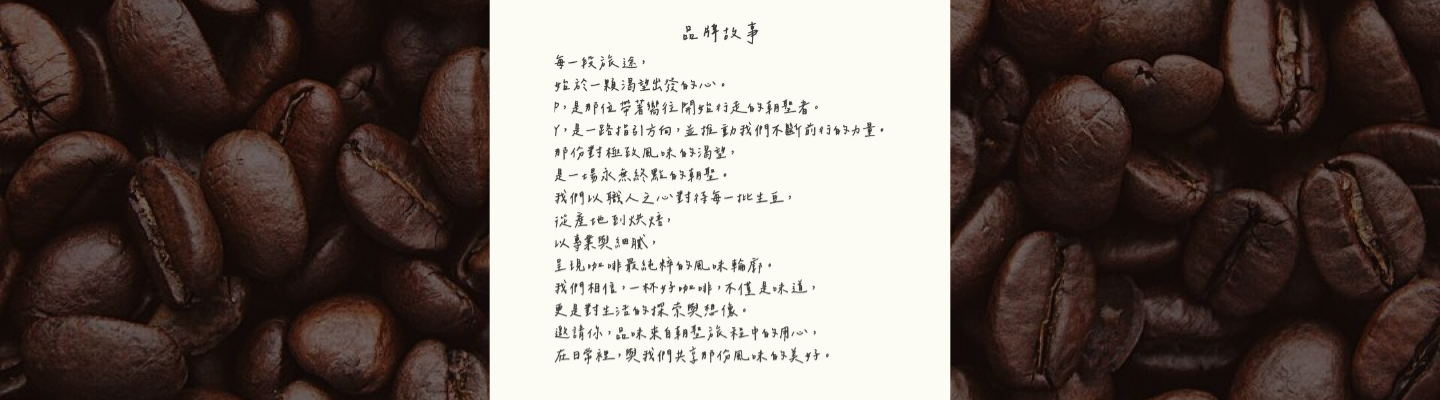 品牌故事
每一段旅途，
始於一顆渴望出發的心。
P，是那位帶著嚮往開始行走的朝聖者。
Y，是一路指引方向，並推動我們不斷前行的力量。
那份對極致風味的渴望，
是一場永無終點的朝聖。
我們以職人之心對待每一批生豆，
從產地到烘焙，
以專業與細膩，
呈現咖啡最純粹的風味輪廓。
我們相信，一杯好咖啡，不僅是味道，
更是對生活的探索與想像。
邀請你，品味來自朝聖旅程中的用心，
在日常裡，與我們共享那份風味的美好。